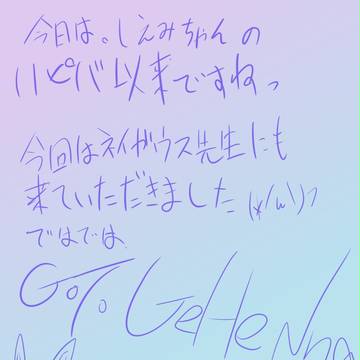 今日は。しえみちゃんの
ハピバ以来ですねっ
今回はネイガウス先生にも
来ていただきました(*/ω\)っ
ではでは
Go To GeHeNna